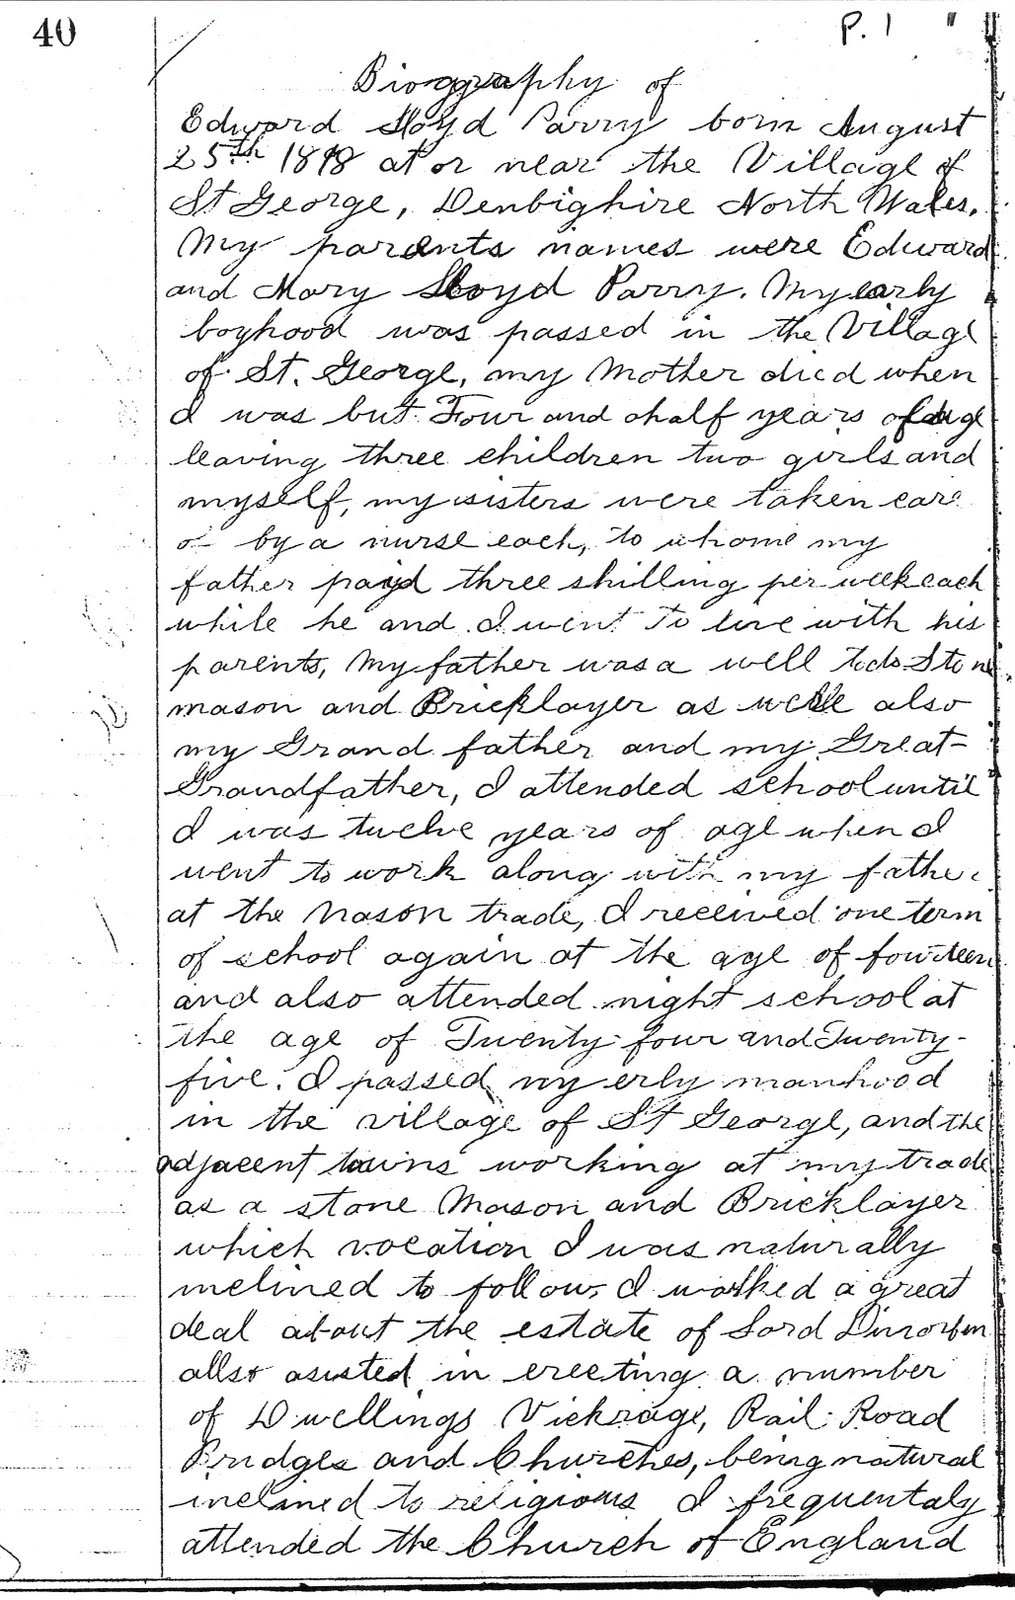 40
P. 1
Biography of
Edward Lloyd Parry born August
25th 1818 at or near the Village of
St George, Denbighire North Wales.
My parents names were Edward
and Mary Lloyd Parry. My early
boyhood was passed in the Village
of St. George, my Mother died when
I was but Four and ahalf years of age
leaving three children two girls and
myself, my sisters were taken care
o by a nurse each, to whome my
father payd three shilling per week each
while he and I went to live with his
parents, My father was a well todo Stone
mason and Bricklayer as well also
my Grand father and my Great-
Grandfather, I attended school until
I was twelve years of age when I
went to work along with my father
at the Mason trade, I received one term
of school again at the age of fourteen
and also attended night school at
the age of Twenty four and Twenty-
five. I passed my erly manhood
in the village of St George, and the
adjacent towns working at my trade
as a stone Mason and Bricklayer
which vocation I was naturally
inclined to follow, I worked a great
deal about the estate of Lord Dinorben
allso asisted in erecting a number
of Dwellings Vickrage, Rail Road
Bridges and Churches, being natural
inclined to religious I frequentaly
attended the Church of England